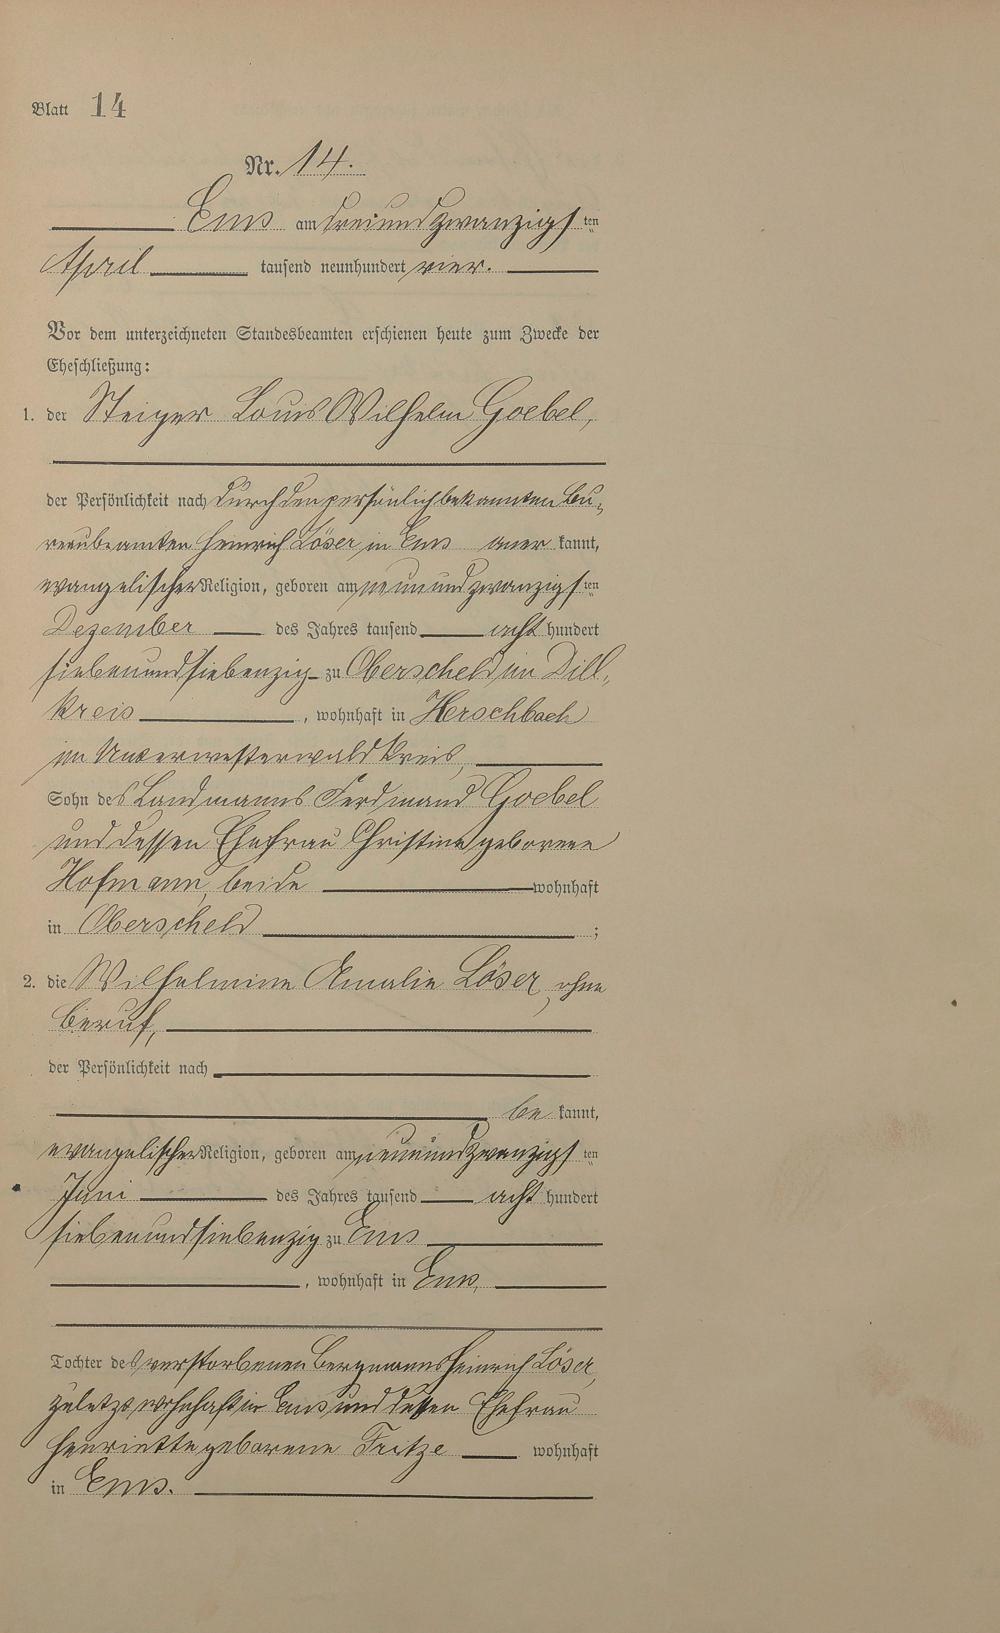 Blatt 14
Nr. 14.
Ems am dreiundzwanzigsten
April tausend neunhundert vier.
Vor dem unterzeichneten Standesbeamten erschienen heute zum Zwecke der
Eheschließung:
1. der Steiger Louis Wilhelm Goebel,
der Persönlichkeit nach durch den persönlich bekannten Bu-
reaubeamten Heinrich Löser in Ems anerkannt,
evangelischer Religion, geboren am neunundzwanzigsten
Dezember des Jahres tausend achthundert
siebenundsiebenzig zu Oberscheld im Dill-
kreis, wohnhaft in Herschbach
im Unterwesterwaldkreis,
Sohn des Landmanns Ferdinand Goebel
und dessen Ehefrau Christine geborene
Hofmann, beide wohnhaft
in Oberscheld;
2. die Wilhelmine Amalie Löser, ohne
Beruf,
der Persönlichkeit nach
bekannt,
evangelischer Religion, geboren am neunundzwanzigsten
Juni des Jahres tausend achthundert
siebenundsiebenzig zu Ems
, wohnhaft in Ems,
Tochter des verstorbenen Bergmanns Heinrich Löser,
zuletzt wohnhaft in Ems und dessen Ehefrau
Henriette geborene Fritze wohnhaft
in Ems.